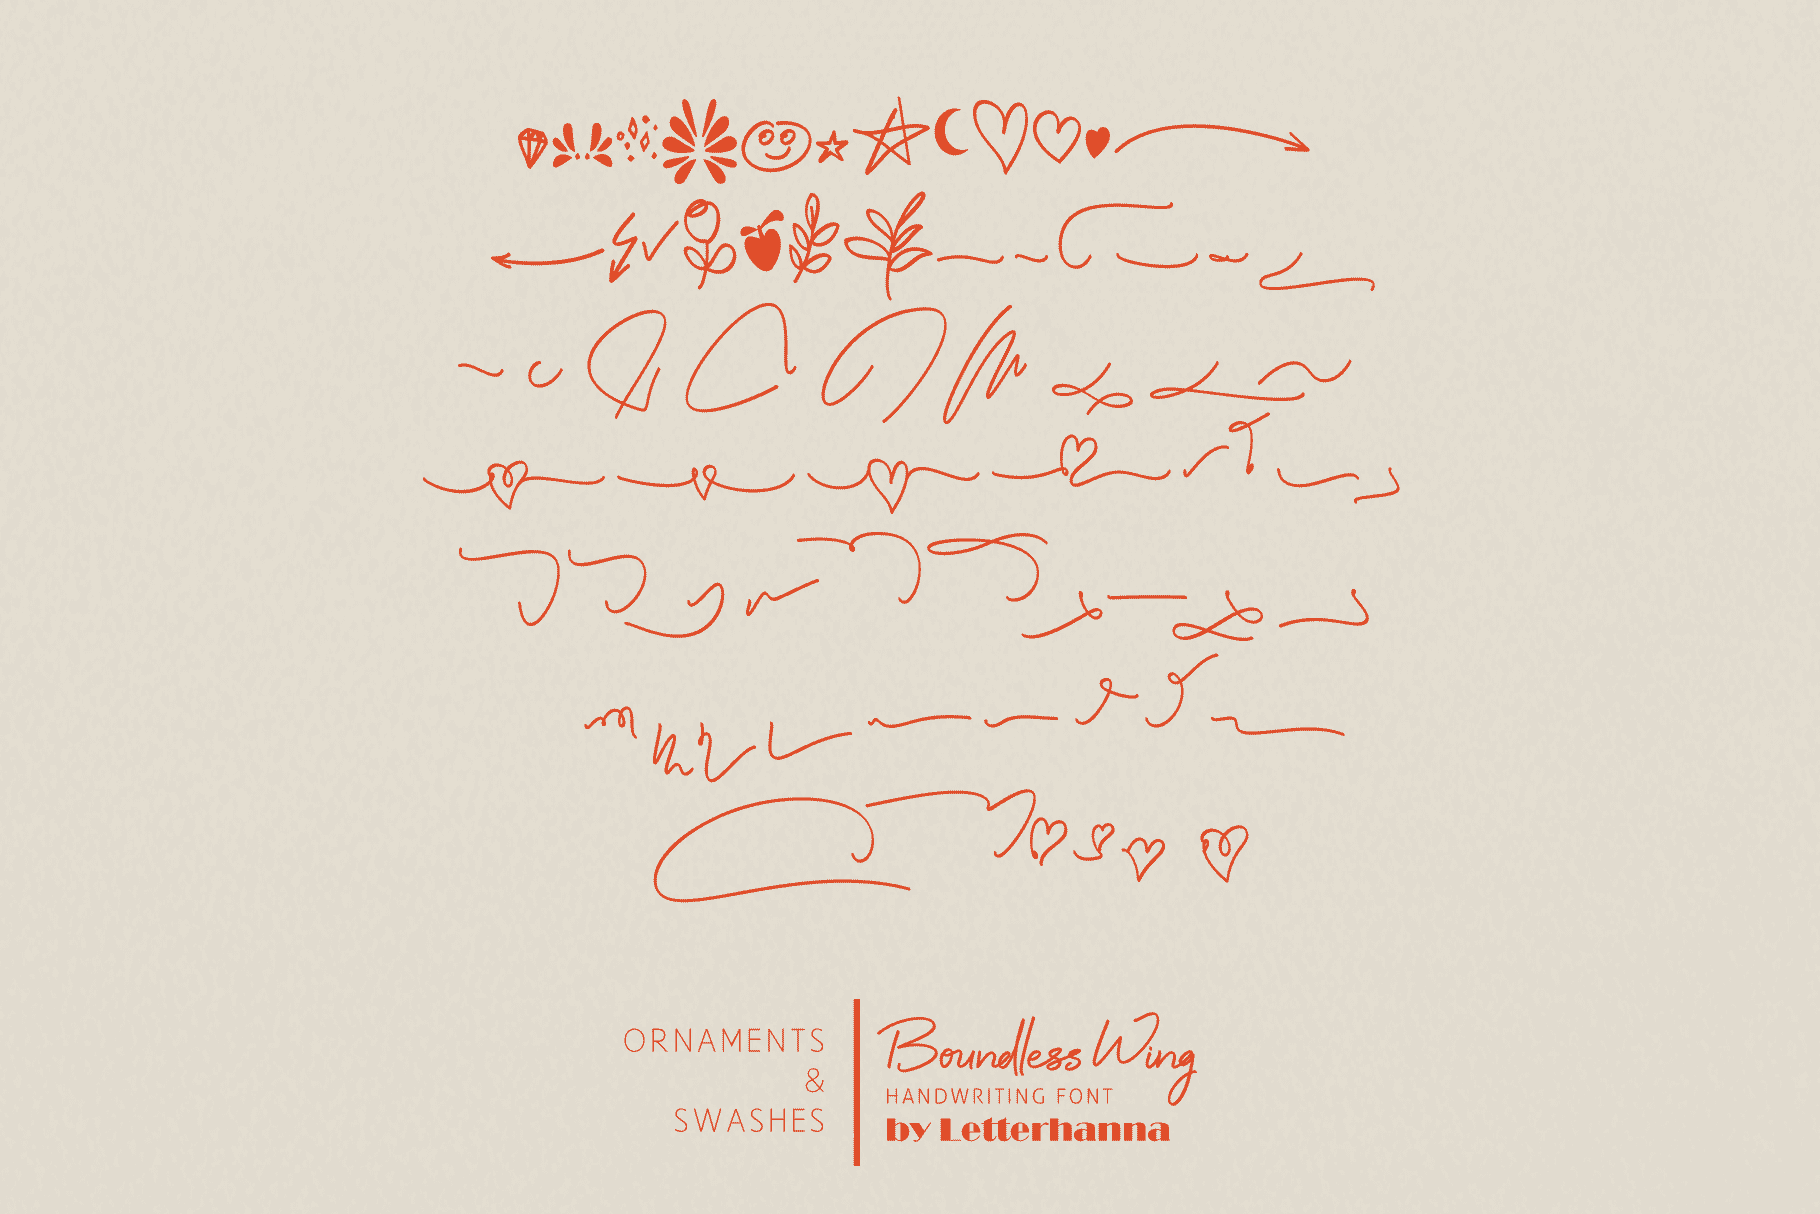 ORNAMENTS
&
SWASHES
Boundless Wing
HANDWRITING FONT
by Letterhanna